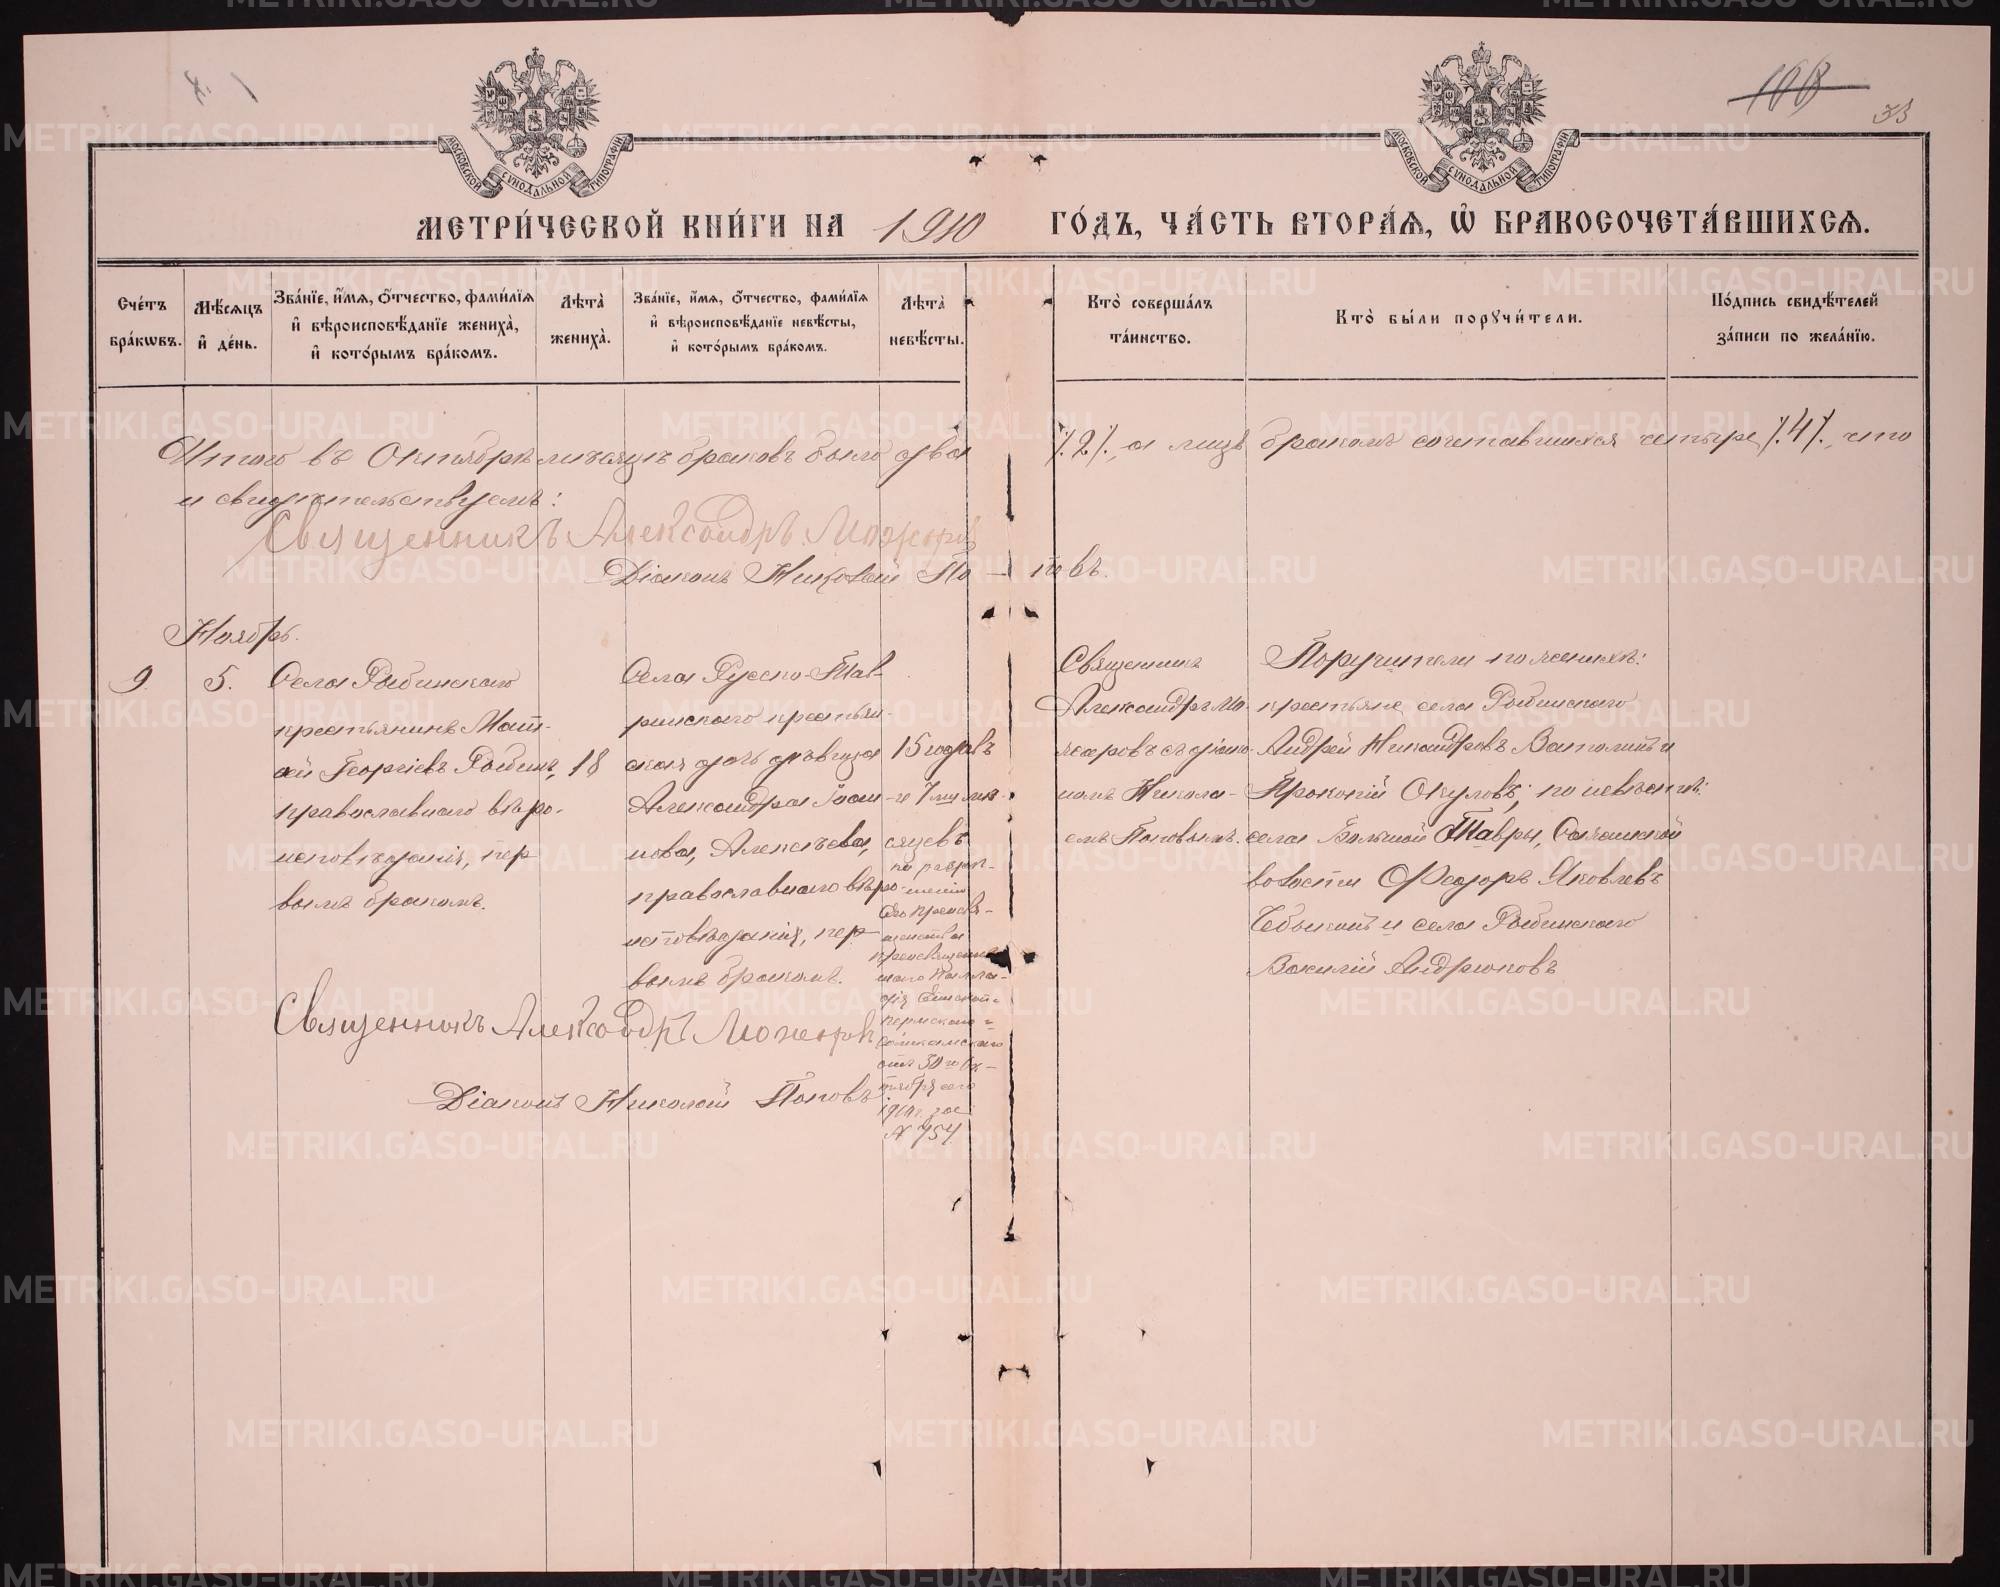 1
106
33
МОСКОВСКОЙ СѴНОДАЛЬНОЙ ТИПОГРАФІИ
МОСКОВСКОЙ СѴНОДАЛЬНОЙ ТИПОГРАФІИ
МЕТРИ́ЧЕСКОЙ КНИ́ГИ НА 1910 ГО́ДЪ, ЧА́СТЬ ВТОРА́Ѧ, Ѽ БРАКОСОЧЕТА́ВШИХСѦ.
Сче́тъ
бра́кѡвъ.
Мѣ́сѧцъ
и҆ де́нь.
Зва́нїе, и҆́мѧ, ѻ҆́тчество, фами́лїѧ
и҆ вѣроисповѣ́данїе жениха̀,
и҆ кото́рымъ бра́комъ.
Лѣ́та
жениха̀.
Зва́нїе, и҆́мѧ, ѻ҆́тчество, фами́лїѧ
и҆ вѣроисповѣ́данїе невѣ́сты,
и҆ кото́рымъ бра́комъ.
Лѣ́та
невѣ́сты.
Кто̀ соверша́лъ
та́инство.
Кто̀ бы́ли порꙋчи́тели.
По́дпись свидѣ́телей
за́писи по жела́нїю.
Итого въ Октябрѣ мѣсяцѣ браковъ было два /.2/., а лицъ бракомъ сочетавшихся четыре /.4/., что
и свидѣтельствуемъ:
Священникъ Александръ Можаровъ
Діаконъ Николай По-повъ.
Ноябрь.
9.
5.
Села Рыбинскаго
крестьянинъ Мат-
ѳей Георгіевъ Рыбинъ,
православнаго вѣро-
исповѣданія, пер
вымъ бракомъ.
18
Села Русско-Тав-
ринскаго крестьян-
ская дочь дѣвица
Александра Іоан-
нова, Алексѣева,
православнаго вѣро-
исповѣданія, пер-
вымъ бракомъ.
15 годовъ
и 7ми мѣ-
сяцевъ
по разрѣ-
шенію
Его Преосвя-
щенства
Преосвященнѣ-
шаго Палла-
дія Епископа
Пермскаго и
Соликамскаго
отъ 30го Ок-
тября сего
1910 г. за
№ 757
Священникъ
Александръ Мо-
жаровъ съ діако-
номъ Никола-
емъ Поповымъ.
Поручители по женихѣ:
крестьяне села Рыбинскаго
Андрей Никандровъ Ватолинъ и
Прокопій Окуловъ; по невѣстѣ:
села Большой Тавры,
волости Ѳеодоръ Яковлевъ
и села Рыбинскаго
Василій Андрюковъ
Священникъ Александръ Можаровъ
Діаконъ Николай Поповъ
METRIKI.GASO-URAL.RU